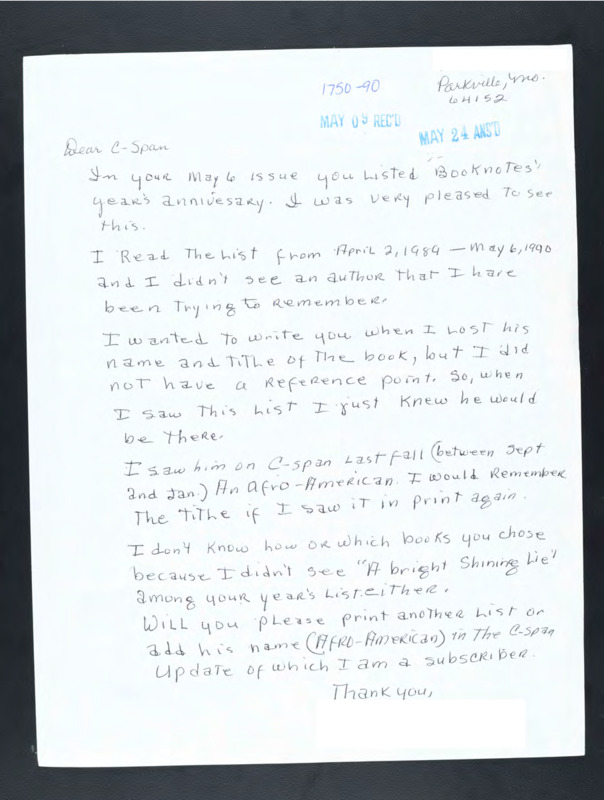 1750-90
Parkville, Mo.
64152
MAY 09 REC'D
MAY 24 ANS'D
Dear C-Span
In your May 6 issue you Listed Booknotes'
year's annivesary. I was very pleased to see
this.
I Read The List from April 2, 1989 — May 6, 1990
and I didn't see an author that I have
been Trying to Remember.
I wanted to write you when I Lost his
name and TiTlle of The book, but I did
not have a Reference point. So, when
I saw This List I just Knew he would
be There.
I saw him on C-span Last fall (between Sept
and Jan.) An Afro-American. I would Remember
The Titlle if I saw it in print again.
I don't Know how or which books you chose
because I didn't see "A bright Shining Lie"
among your year's List either.
Will you please print another List or
add his name (AFRO-American) in The C-span
Update of which I am a subscriber.
Thank you,